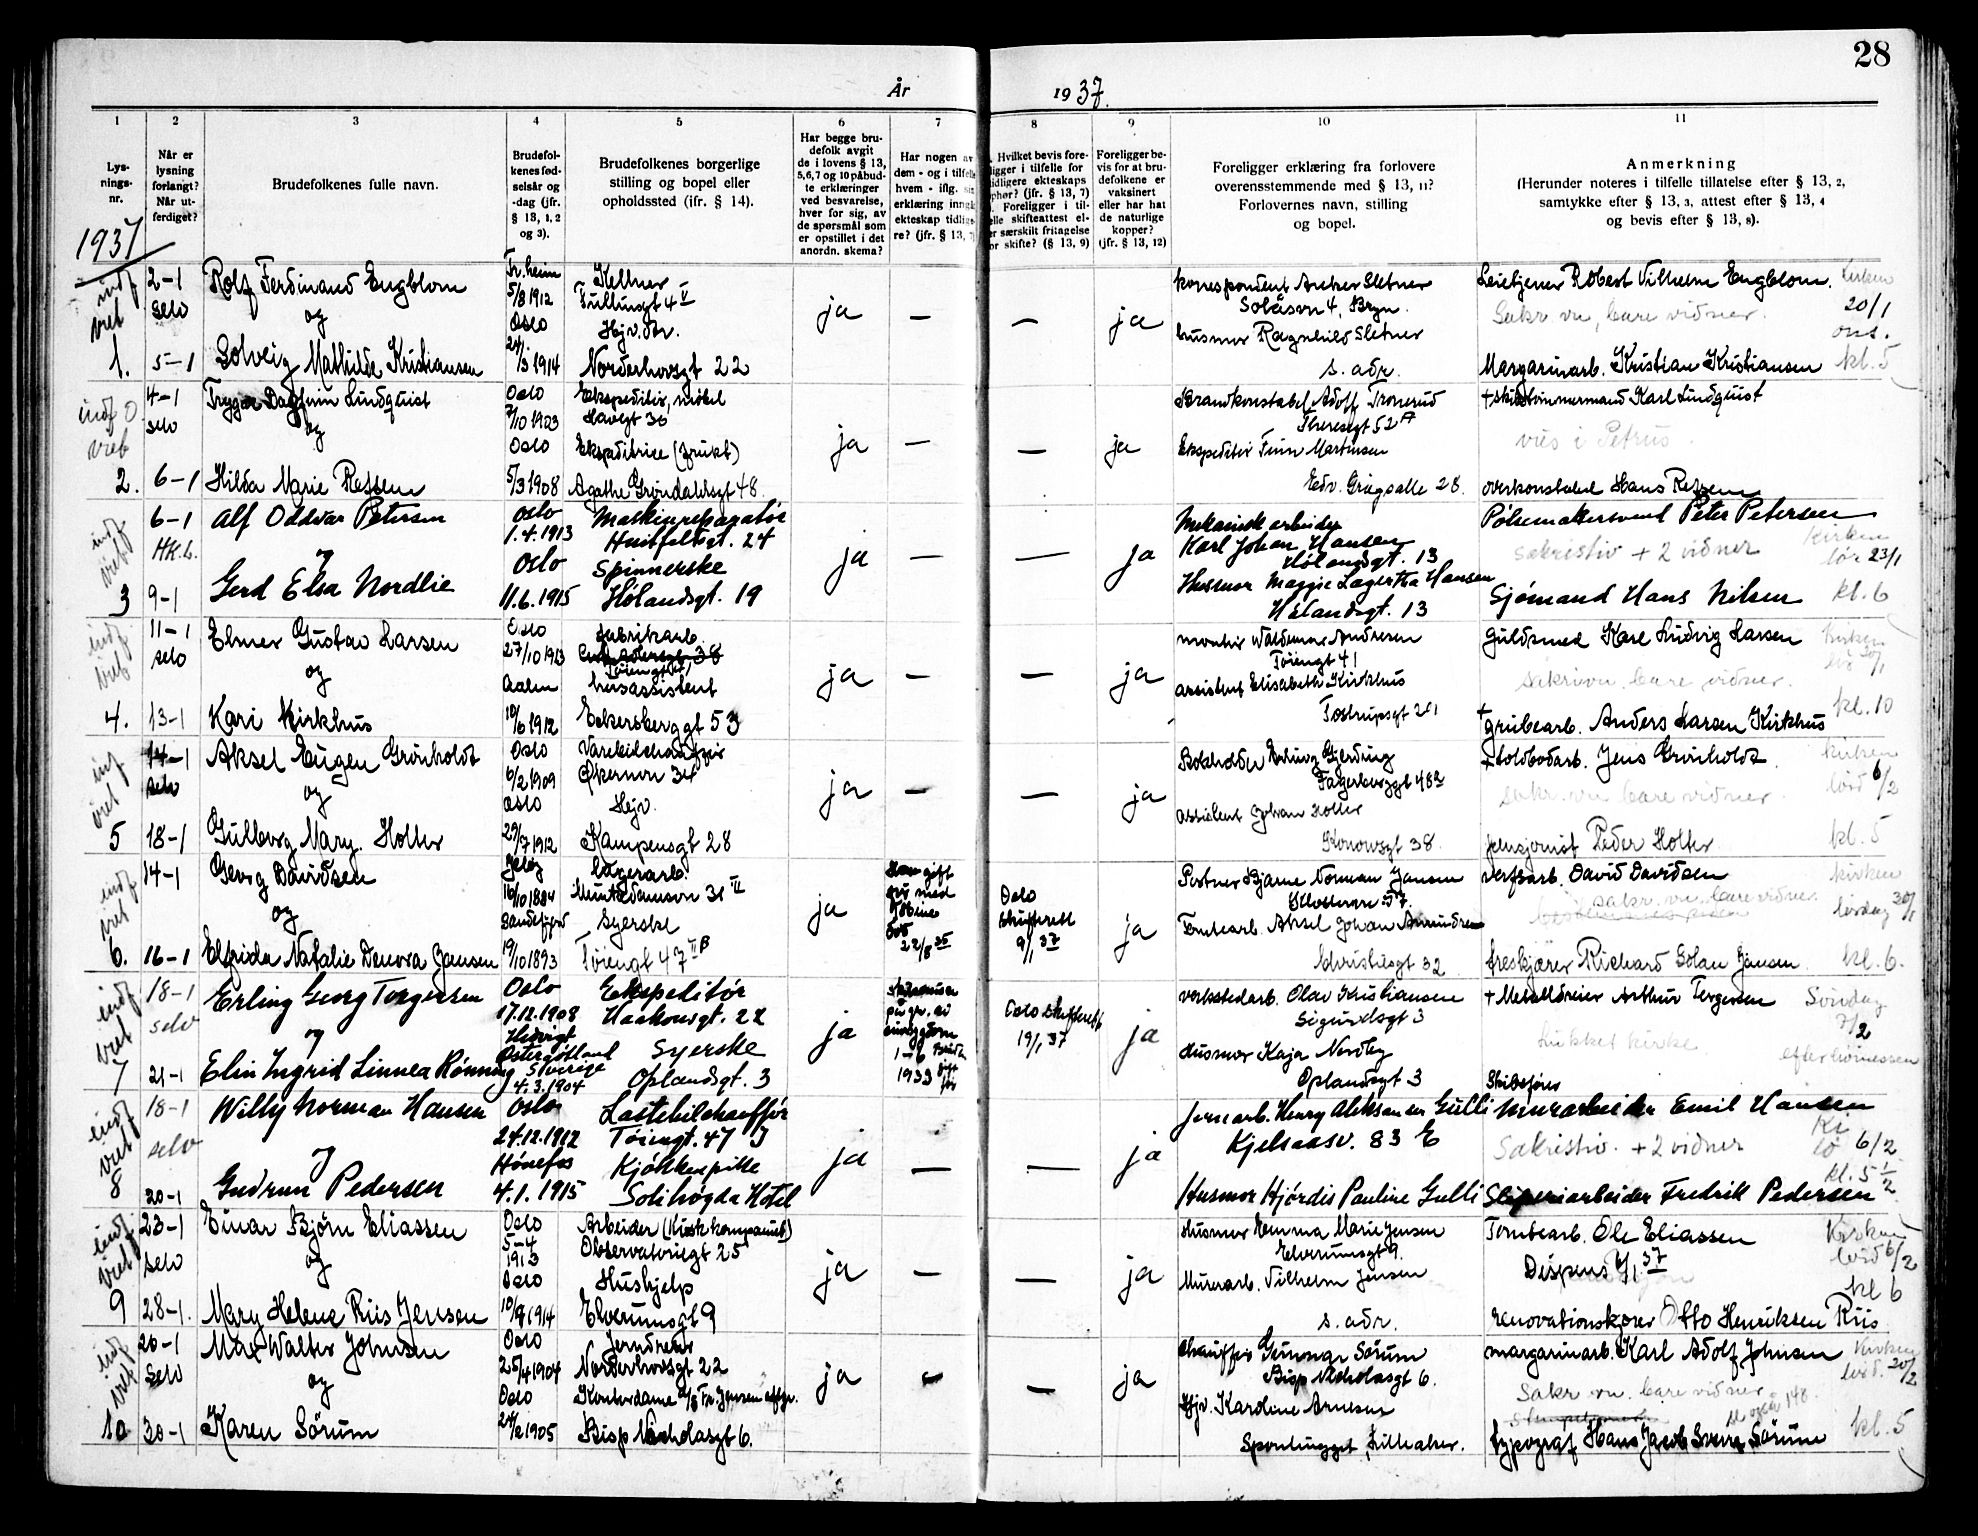 28
År 1937.
1 2 3 4 5 6 7 8 9 10 11
Lysnings-nr.
Når er lysning forlangt? Når utferdiget?
Brudefolkenes fulle navn.
Brudefolkenes fødselsår og -dag (jfr. § 13, 1, 2 og 3).
Brudefolkenes borgerlige stilling og bopel eller opholdssted (ifr. § 14).
Har begge brudefolk avgit de i lovens § 13, 5, 6, 7 og 10 påbudte erklæringer ved besvarelse, hver for sig, av de spørsmål som er opstillet i det anordn. skema?
Har nogen av dem - og i tilfelle hvem - iflg. sin erklæring inngått ekteskap tidligere? (jfr. § 13, 7)
Hvilket bevis foreligger i tilfelle for tidligere ekteskaps ophør? (jfr. § 13, 7) Foreligger i tilfelle skifteattest eller særskilt fritagelse for skifte? (§ 13, 9)
Foreligger bevis for at brudefolkene er vaksinert eller har hat de naturlige kopper? (jfr. § 13, 12)
Foreligger erklæring fra forlovere overensstemmende med § 13, 11? Forlovernes navn, stilling og bopel.
Anmerkning (Herunder noteres i tilfelle tillatelse efter § 13, 2, samtykke efter § 13, 3, attest efter § 13, 4 og bevis efter § 13, 8).
1937
indf viet
1.
2-1 selv 5-1
Rolf Ferdinand Engblom
og
Solveig Mathilde Kristiansen
Tr.heim 5/8 1912
Oslo 1914
Kellner
Tullinsgt 4 V
Hjv. dtr.
Norderhovsgt 22
ja — — ja
korrespondent Slettner
Solåsvn 4, Bryn.
husmor Ragnhild Slettner
s. adr.
Robert Vilhelm Engblom.
Sakr. vn, bare vidner.
kirken 20/1 ons. kl. 5
Margarinarb. Kristian Kristiansen
2.
4-1 selv 6-1
Trygve Dagfinn Lindquist
og
Hilda Marie Rossem
Oslo 7/10 1903
Oslo 5/3 1908
Ekspeditør, møbel
Havegt 36
Ekspeditrice (frukt)
Agathe Grøndahlsgt 48.
ja — — ja
Brandkonstabel Adolf Tronerud
Theresgt 52 A
Ekspeditør Finn Martinsen
Edv. Griegsalle 28.
+ skibstømmermand Karl Lindquist
vies i Petrus.
overkonstabel Hans
3
6-1 HK.L. 9-1
Alf Oddvar Petersen
og
Gerd Elsa Nordlie
Oslo 1.4.1913
Oslo 11.6.1915
Maskinreparatør
Huitfeltsgt. 24
Spinnerske
Hølandsgt. 19
ja — — ja
Mekanisk arbeider
Karl Johan Hansen
Hølandsgt. 13
Husmor Maggie Lagertha Hansen
Hølandsgt. 13
Pølsemakersvend Peter Petersen
Sakristiv + 2 vidner
kirken lør 23/1 kl. 6
Sjømand Hans Nilsen
4.
11-1 selv 13-1
Elmer Gustav Larsen
og
Kari Kirkhus
Oslo 27/10 1913
Aalen 10/6 1912
fabrikarb.
Tøiengt
husassistent
Eckersberggt 53
ja — — ja
montør Waldemar Andresen
Tøiengt 41
assistent Elisabeth Kirkhus
Tostrupsgt 21
Guldsmed Karl Ludvig Larsen
bare vidner.
kirken kl. 10
+ grubearb. Anders Larsen Kirkhus
5
14-1 selv 18-1
Aksel Eugen Grönholdt
og
Gulborg Mary. Holter
Oslo 6/2 1909
Oslo 29/7 1912
Varebilchauffør
Økernvn 34
Hejv.
Kampensgt 28
ja — — ja
Bokholder Erling Gjerding
Fagerborggt 48a
assistent Johan Holter
Konowsgt 38.
+ toldbodarb. Jens Grönholdt
sakr. vn bare vidner
kirken lørd 6/2 kl. 5
pensjonist Peder Holter
6.
14-1 16-1
Georg Davidsen
og
Elfrida Natalie Denora Jansen
Jeløy 16/10 1884
Sandefjord 19/10 1893
lagerarb.
Munkedamsvn 31 II
Syerske
Tøiengt 47 II B
ja
gift død 22/8 35
Oslo skifterett 9/1 37
ja
Portner Bjarne Norman Jansen
57.
Tomtearb. Aksel Johan Amundsen
Schweigaardsgt 32
verftsarb. David Davidsen
sakr. vn. bare vidner
kirken lørdag 30/1 kl. 6.
Richard Jansen
7
18-1 selv 21-1
Erling Georg Torgersen
og
Elin Ingrid Linnea Rønning
Oslo 17.12.1908
Østergøtland Sverige 4.3.1904
Ekspeditør
Haakonsgt. 22
Syerske
Oplandsgt. 3
ja
1933
Oslo skifterett 19/1 37
ja
verkstedarb. Olav Kristiansen
Sigurdsgt 3
Husmor Kaja Nordby
Oplandsgt 3
+ Metalldreier Arthur Torgersen
lukket kirke
Søndag 7/2 efter høimessen
8
18-1 selv 20-1
Willy Norman Hansen
og
Gudrun Pedersen
Oslo 24.12.1912
Hönefos 4.1.1915
Lastebilchauffør
Tøiengt. 47 I
Kjøkkenpike
Solihøgda Hotel
ja — — ja
Jernarb. Henry Aleksander Gulli
Kjelsaasv. 83 E
Husmor Hjördis Pauline Gulli
Murarbeider Emil Hansen
Sakristiv. + 2 vidner
lø 6/2 kl. 5 1/2
Sliperiarbeider Fredrik Pedersen
9
23-1 selv 28-1.
Einar Bjørn Eliassen
og
Mary Helene Riis Jensen
Oslo 5-4 1913
Oslo 1914
Arbeider (Kioskkompaniet)
Observatoriegt 25
Hushjelp
Elverumsgt 9
ja — — ja
Husmor Emma Marie Jensen
Elverumsgt 9.
Murerarb. Vilhelm Jensen
s. adr.
Tomtearb. Ole Eliassen
Dispens 37
Kirken lørd 6/2 kl 6
renovationskjører Otto Henriksen Riis
10
20-1 selv 30-1
Max Walter Johnsen
og
Karen Sørum
Oslo 25/4 1904
Oslo 1905
Jerndreier
Norderhovsgt 22
Kontordame
Bisp Nicholasgt 6.
ja — — ja
Chauffør Gunnar Sørum
Bisp Nicholasgt 6.
Hjv. Karoline Arnesen
Lilleaker.
margarinarb. Karl Adolf Johnsen
Sakr. vn. bare vidner
Kirken lørd. 20/2 kl. 5
typograf Hans Jacob Sverre Sørum